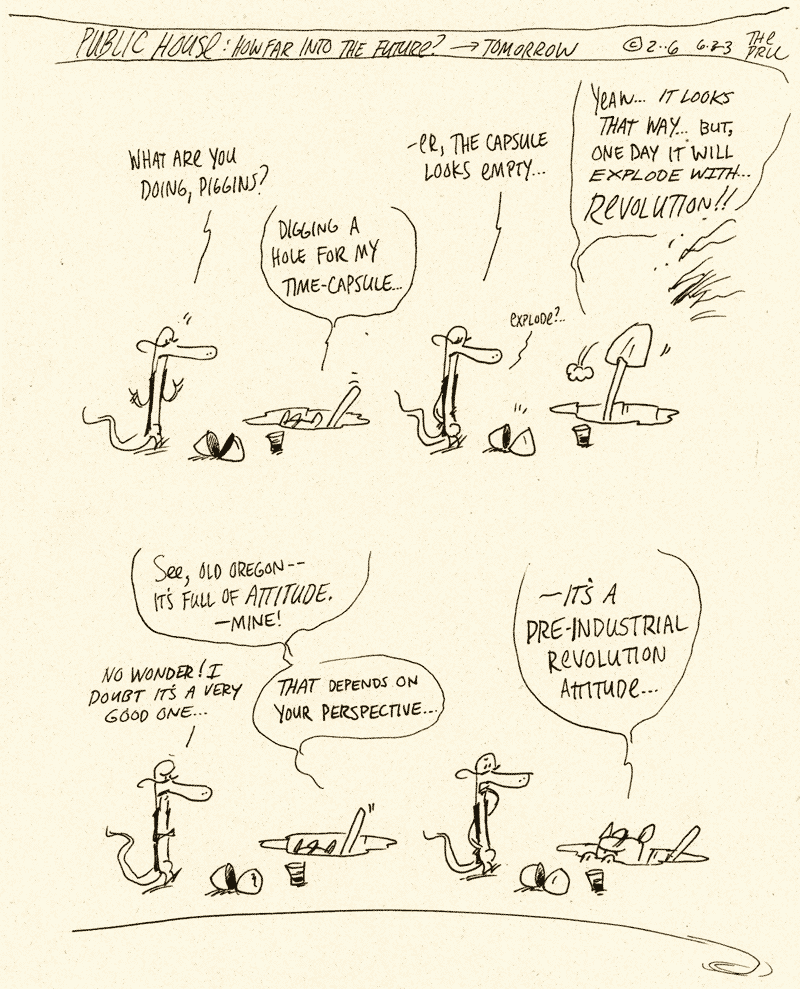 PUBLIC HOUSE: HOW FAR INTO THE FUTURE? → TOMORROW © 2..6 6.23 THE PRU
WHAT ARE YOU
DOING, PIGGINS?
DIGGING A
HOLE FOR MY
TIME-CAPSULE...
-ER, THE CAPSULE
LOOKS EMPTY...
YEAH... IT LOOKS
THAT WAY... BUT,
ONE DAY IT WILL
EXPLODE WITH...
REVOLUTION!!
EXPLODE?..
SEE, OLD OREGON--
IT'S FULL OF ATTITUDE.
-MINE!
NO WONDER! I
DOUBT IT'S A VERY
GOOD ONE...
THAT DEPENDS ON
YOUR PERSPECTIVE...
-IT'S A
PRE-INDUSTRIAL
REVOLUTION
ATTITUDE...